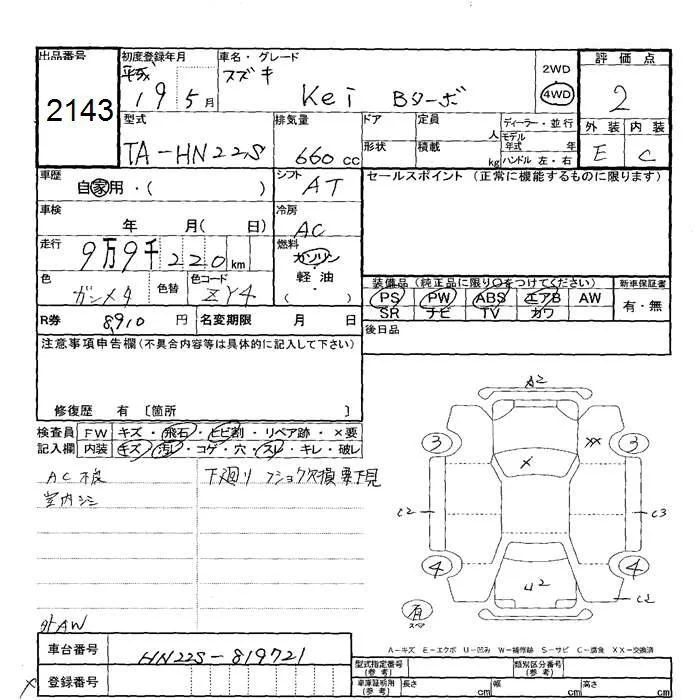 出品番号
2143
初度登録年月
平成 19 5月
車名・グレード
スズキ
Kei Bターボ
2WD
4WD
評価点
2
外装 内装
E C
型式
TA-HN22S
排気量
660cc
ドア 定員 人
形状 積載 kg
ディーラー・並行
モデル年式 年
ハンドル 左・右
車歴
自家用・( )
シフト
AT
セールスポイント (正常に機能するものに限ります)
車検
年 月( 日)
冷房
AC
走行
9万9千220km
燃料
ガソリン
・
軽油
・
( )
色
ガンメタ
色替
色コード
ZY4
装備品(純正品に限り○をつけてください)
PS PW ABS エアB AW
SR ナビ TV カワ
新車保証書
有・無
R券 8910円
名変期限 月 日
後日品
注意事項申告欄(不具合内容等は具体的に記入して下さい)
修復歴 有 [箇所 ]
検査員記入欄
FW キズ・飛石・ヒビ割・リペア跡・×要
内装 キズ・汚レ・コゲ・穴・スレ・キレ・破レ
AC不良
室内シミ
下廻り フショク欠損要下見
外AW
A2
3 XX 3
X
C2 C3
4 4
U2
C2
有
スペア
A-キズ E-エクボ U-凹み W-補修跡 S-サビ C-腐食 XX-交換済
車台番号
HN22S-819721
登録番号
X
型式指定番号(参考)
類別区分番号(参考)
車庫証明用(参考) 長さ cm 幅 cm 高さ cm